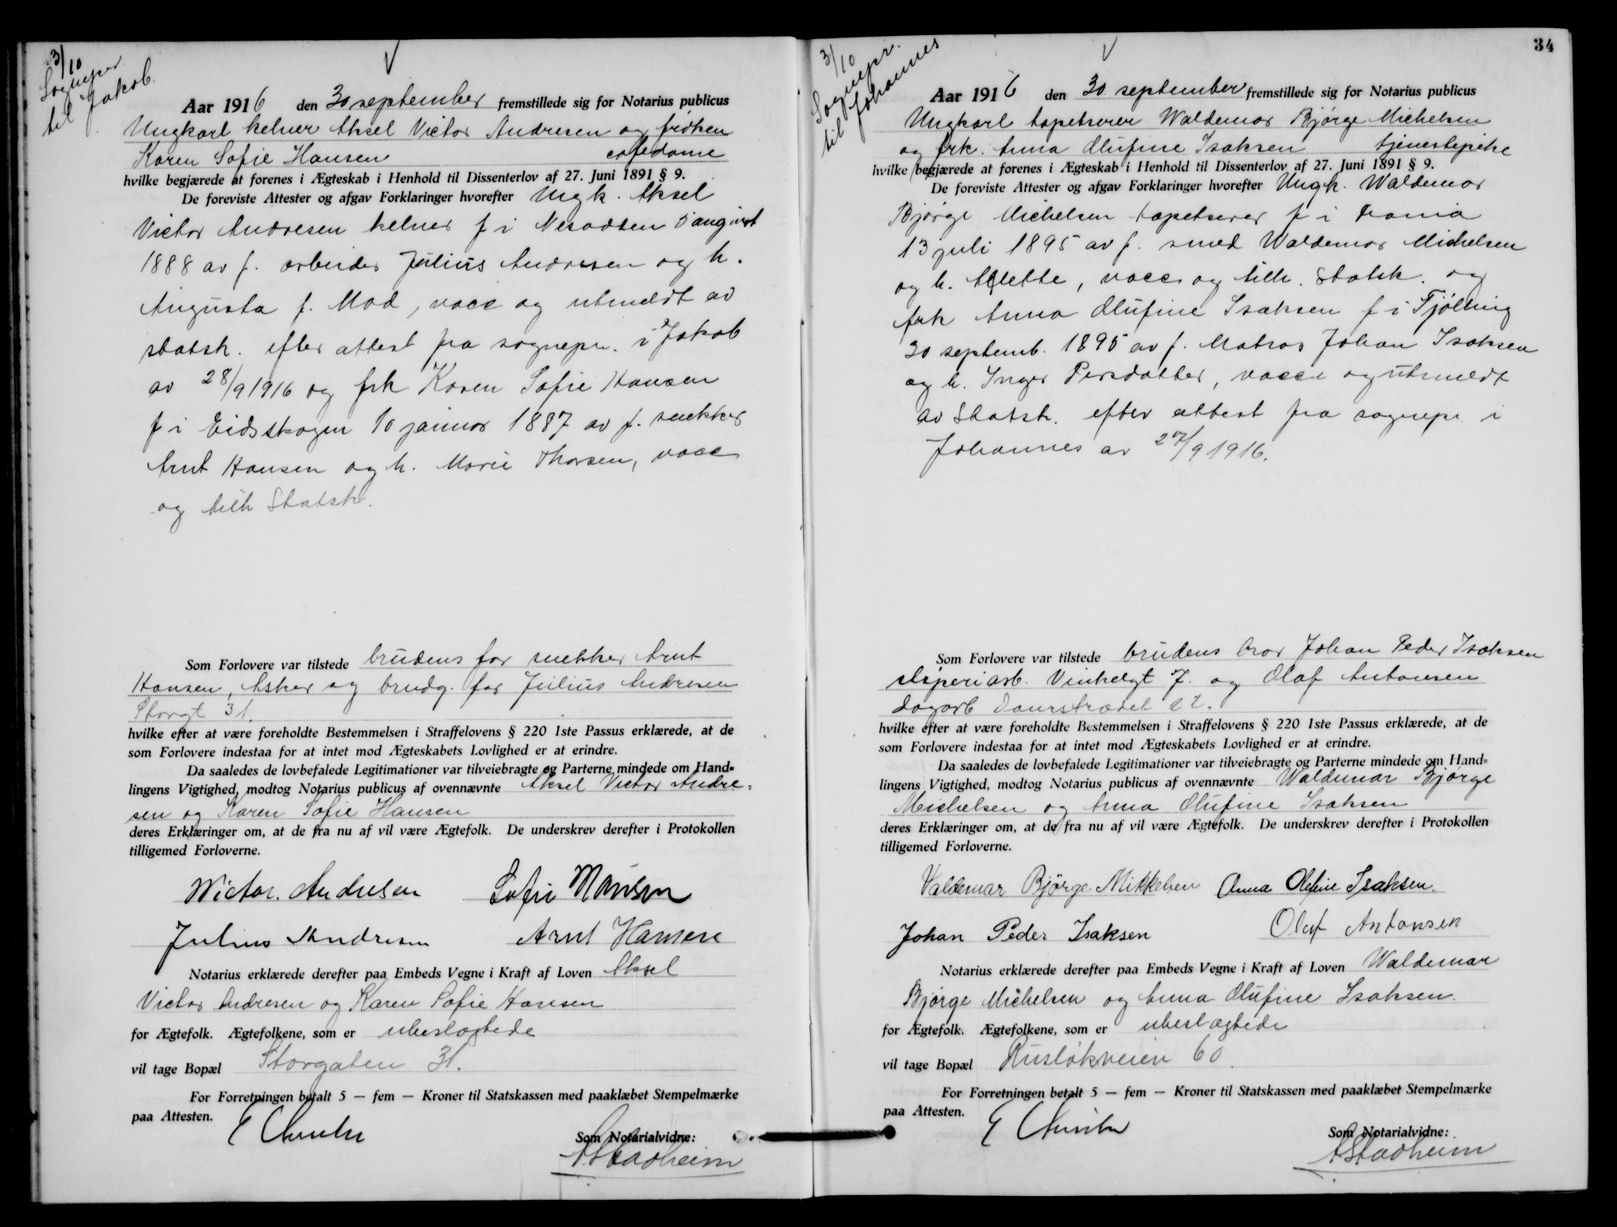 3/10
Sognepr.
til Jakob.
Aar 1916 den 30 september fremstillede sig for Notarius publicus
Ungkarl kelner Aksel Victor Andresen og frøken
Karen Sofie Hansen cafedame
hvilke begjærede at forenes i Ægteskab i Henhold til Dissenterlov af 27. Juni 1891 § 9.
De foreviste Attester og afgav Forklaringer hvorefter Ungk. Aksel
Victor Andresen kelner f i Nesodden 5 august
1888 av f. arbeider Julius Andresen og h.
Augusta f. Mod, vacc og utmeldt av
statsk. efter attest fra sognepr. i Jakob
av 28/9 1916 og frk Karen Sofie Hansen
f i Eidskogen 10 januar 1887 av f. snekker
Arnt Hansen og h. Marie Thorsen, vacc
og tilh Statsk.
Som Forlovere var tilstede brudens far snekker Arnt
Hansen, Asker og brudg. far Julius Andresen
Storgt 31.
hvilke efter at være foreholdte Bestemmelsen i Straffelovens § 220 1ste Passus erklærede, at de
som Forlovere indestaa for at intet mod Ægteskabets Lovlighed er at erindre.
Da saaledes de lovbefalede Legitimationer var tilveiebragte og Parterne mindede om Hand-
lingens Vigtighed, modtog Notarius publicus af ovennævnte Aksel Victor Andre-
sen og Karen Sofie Hansen
deres Erklæringer om, at de fra nu af vil være Ægtefolk. De underskrev derefter i Protokollen
tilligemed Forloverne.
Wictor. Andresen Sofie Hansen
Julius Andresen Arnt Hansen
Notarius erklærede derefter paa Embeds Vegne i Kraft af Loven Aksel
Victor Andresen og Karen Sofie Hansen
for Ægtefolk. Ægtefolkene, som er ubeslægtede
vil tage Bopæl Storgaten 31.
For Forretningen betalt 5 — fem — Kroner til Statskassen med paaklæbet Stempelmærke
paa Attesten.
Som Notarialvidne:
AStadheim
34
3/10
Sognepr.
til Johannes
Aar 1916 den 30 september fremstillede sig for Notarius publicus
Ungkarl tapetserer Waldemar Bjørge Michelsen
og frk. Anna Olufine Isaksen tjenestepike
hvilke begjærede at forenes i Ægteskab i Henhold til Dissenterlov af 27. Juni 1891 § 9.
De foreviste Attester og afgav Forklaringer hvorefter Ungk. Waldemar
Bjørge Michelsen tapetserer f i Krania
13 juli 1895 av f. smed Waldemar Michelsen
og h. Alette, vacc og tilh. Statsk. og
frk Anna Olufine Isaksen f i Tjølling
20 septemb. 1895 av f. Matros Johan Isaksen
og h. Inger Persdatter, vacc og utmeldt
av Statsk. efter attest fra sognepr i
Johannes av 27/9 1916.
Som Forlovere var tilstede brudens bror Johan Peder Isaksen
støperiarb. Vinkelgt 7. og Olaf Antonsen
dagarb Dourstrædet 22.
hvilke efter at være foreholdte Bestemmelsen i Straffelovens § 220 1ste Passus erklærede, at de
som Forlovere indestaa for at intet mod Ægteskabets Lovlighed er at erindre.
Da saaledes de lovbefalede Legitimationer var tilveiebragte og Parterne mindede om Hand-
lingens Vigtighed, modtog Notarius publicus af ovennævnte Waldemar Bjørge
Michelsen og Anna Olufine Isaksen
deres Erklæringer om, at de fra nu af vil være Ægtefolk. De underskrev derefter i Protokollen
tilligemed Forloverne.
Valdemar Bjørge Mikkelsen Anna Olefine Isaksen.
Johan Peder Isaksen Oluf Antonsen
Notarius erklærede derefter paa Embeds Vegne i Kraft af Loven Waldemar
Bjørge Michelsen og Anna Olufine Isaksen.
for Ægtefolk. Ægtefolkene, som er ubeslægtede
vil tage Bopæl Ruseløkveien 60
For Forretningen betalt 5 — fem — Kroner til Statskassen med paaklæbet Stempelmærke
paa Attesten.
Som Notarialvidne:
AStadheim